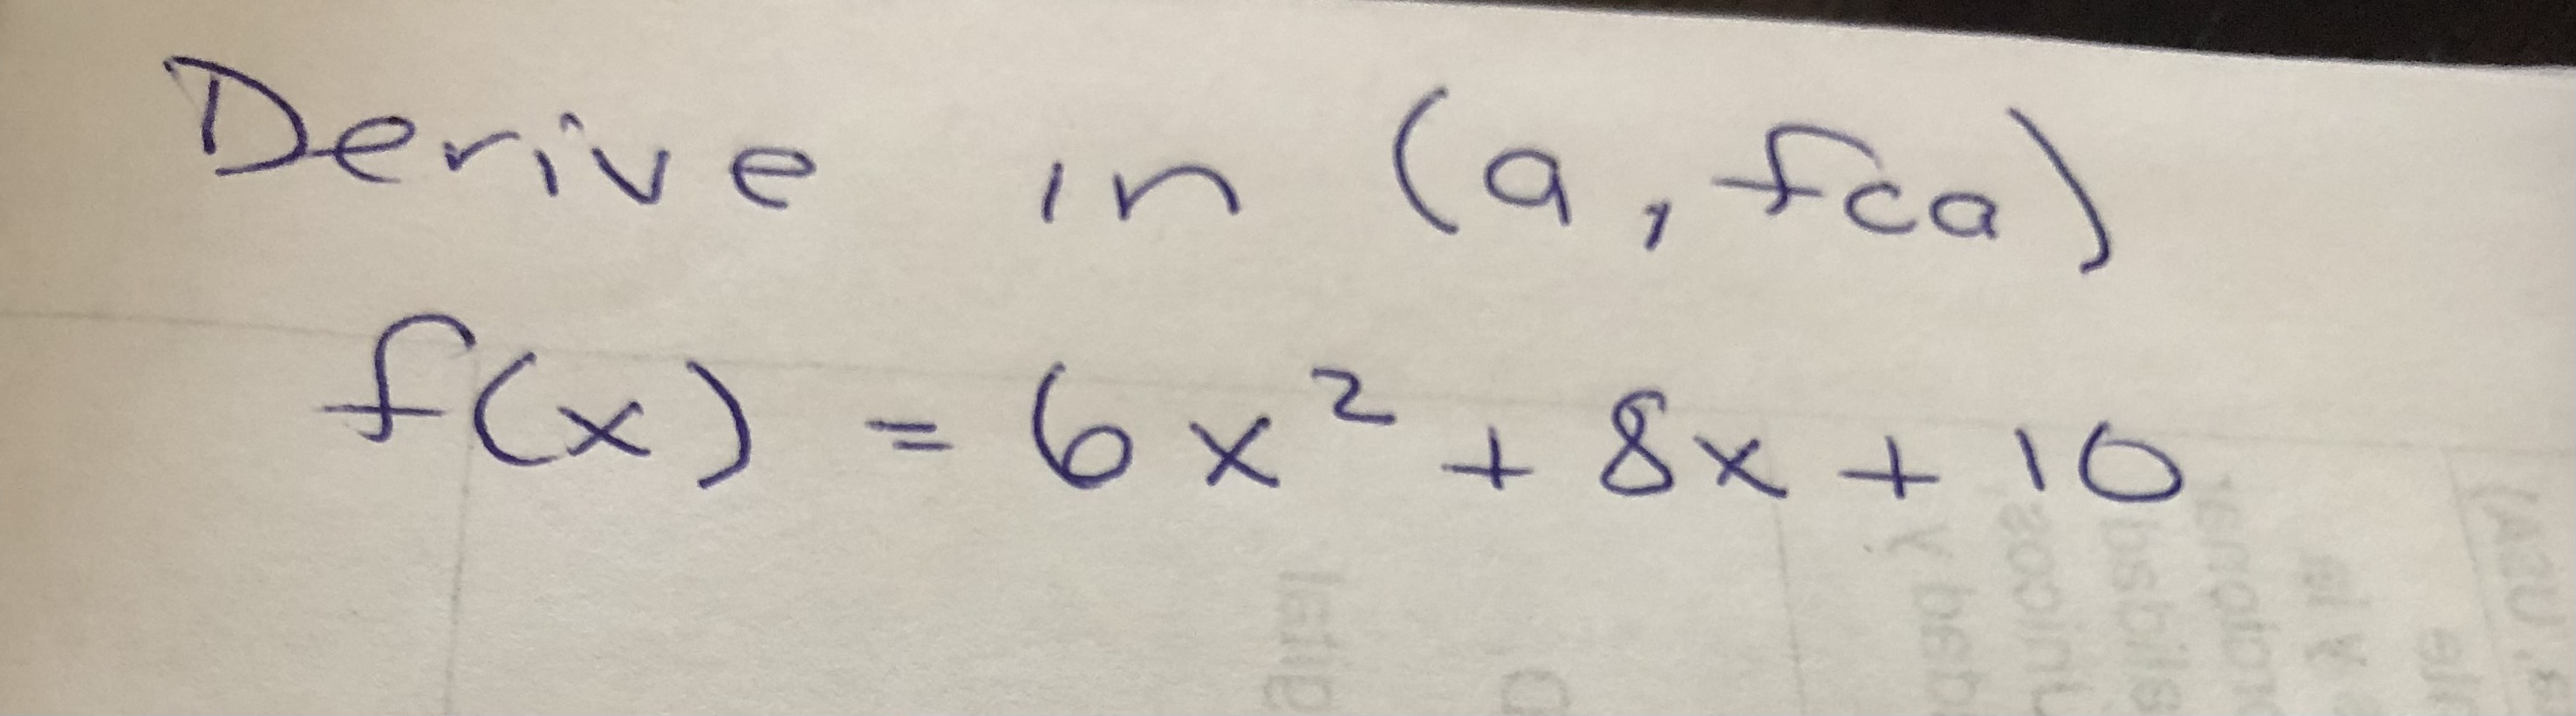 Derive in (a, fca)
f(x) = 6x² + 8x + 10